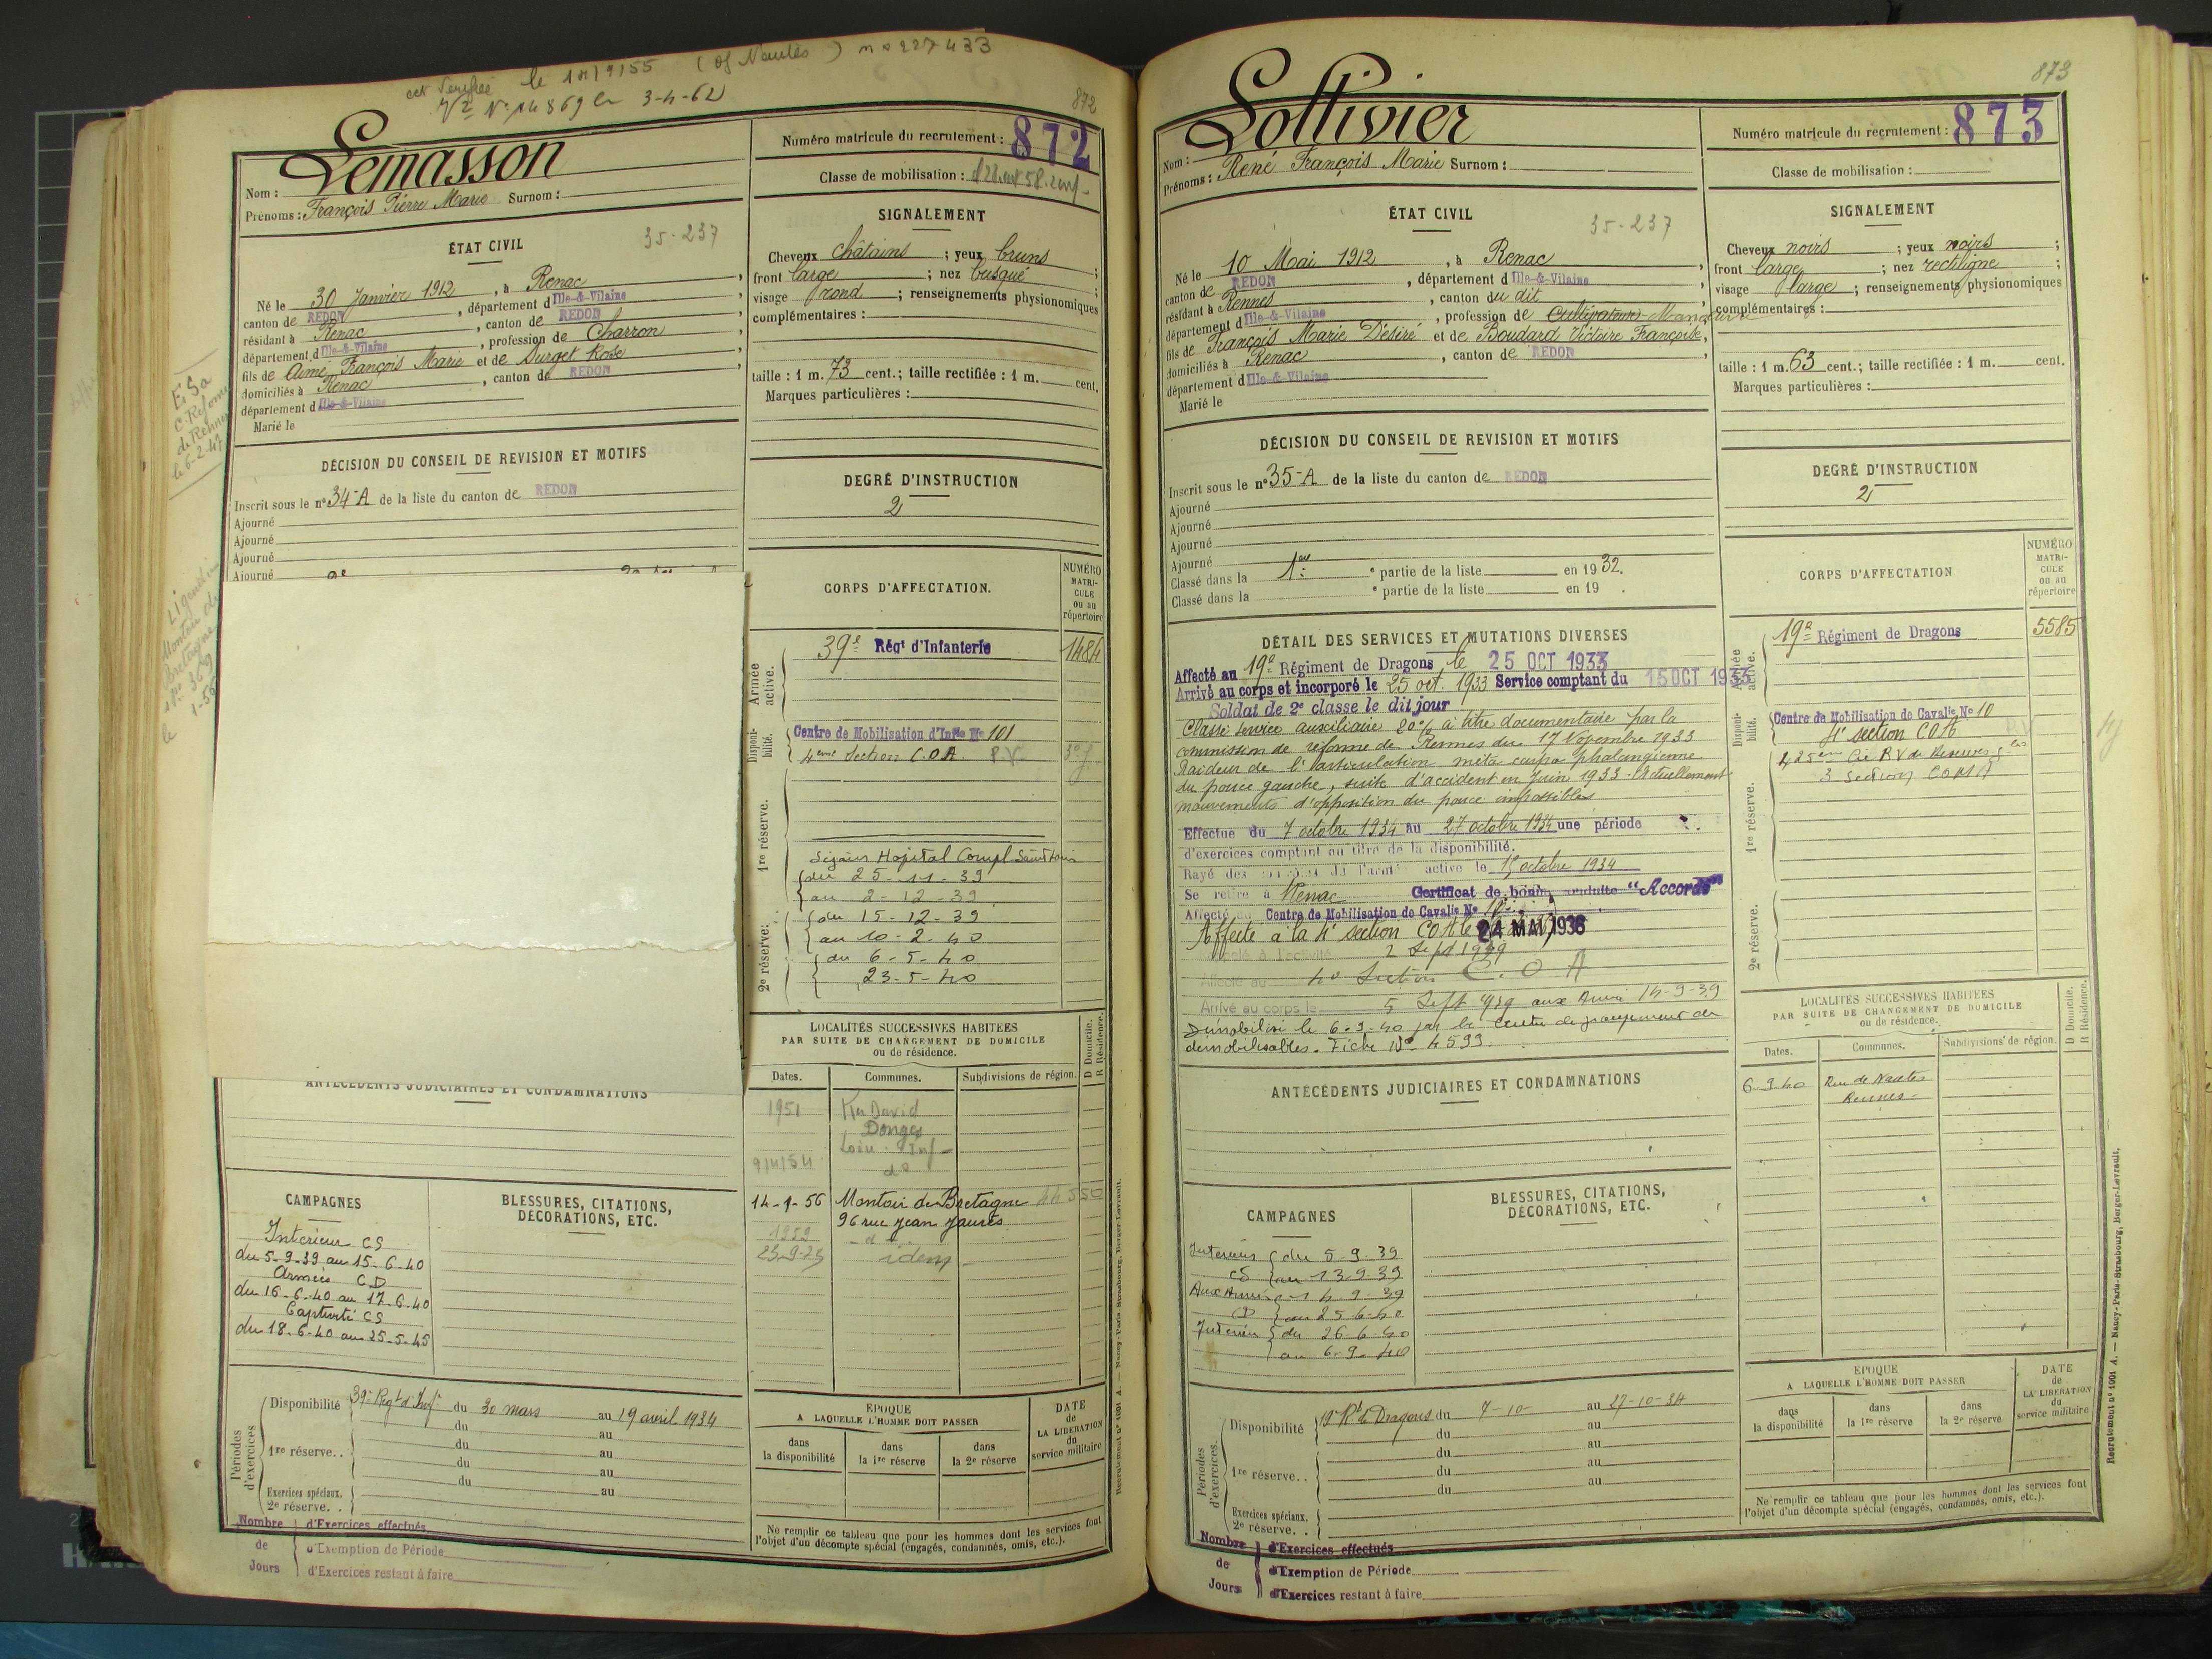 le 14/9/55 (of Nantes) n° 227433
N° 14869 le 3-4-62
872
Lemasson
Nom :
Prénoms : François Pierre Marie Surnom :
Numéro matricule du recrutement : 872
Classe de mobilisation :
ÉTAT CIVIL
35-237
Né le 30 Janvier 1912, à Renac,
canton de REDON, département d Ille-&-Vilaine
résidant à Renac, canton de REDON
département d Ille-&-Vilaine, profession de Charron
fils de Aimé François Marie et de Surget Rose,
domiciliés à Renac, canton de REDON
département d Ille-&-Vilaine
Marié le
SIGNALEMENT
Cheveux châtains ; yeux bruns ;
front large ; nez busqué ;
visage rond ; renseignements physionomiques
complémentaires :
taille : 1 m. 73 cent.; taille rectifiée : 1 m. cent.
Marques particulières :
E S a
C. Réforme
de Rennes
le 6-2-47
DÉCISION DU CONSEIL DE REVISION ET MOTIFS
Inscrit sous le n° 34-A de la liste du canton de REDON
Ajourné
Ajourné
Ajourné
Ajourné
DEGRÉ D'INSTRUCTION
2
CORPS D'AFFECTATION.
NUMÉRO
MATRI-
CULE
ou au
répertoire
Armée
active.
39e Régt d'Infanterie 1484
Disponi-
bilité.
Centre de Mobilisation d'Infie No 101
4eme Section C.O.A. R.V.
1re réserve.
Séjour Hopital Compl Saint Louis
du 25-11-39
au 2-12-39
2e réserve.
du 15-12-39
au 10-2-40
du 6-5-40
23-5-40
Montoir de
Bretagne
N° 369
1-56
le
LOCALITÉS SUCCESSIVES HABITÉES
PAR SUITE DE CHANGEMENT DE DOMICILE
ou de résidence.
D Domicile.
R Résidence.
Dates. Communes. Subdivisions de région.
1951 Ker David
Donges
Loire-Inf
9/4/54 d°
14-1-56 Montoir de Bretagne 44550
96 rue Jean Jaurès
1959 d°
23-9-73 idem
ANTÉCÉDENTS JUDICIAIRES ET CONDAMNATIONS
CAMPAGNES
Intérieur CS
du 5-9-39 au 15-6-40
Armées CD
du 16-6-40 au 17-6-40
Captivité CS
du 18-6-40 au 25-5-45
BLESSURES, CITATIONS,
DÉCORATIONS, ETC.
Périodes
d'exercices
Disponibilité 39e Regt d'Inf du 30 mars au 19 avril 1934
du au
1re réserve.. du au
du au
du au
Exercices spéciaux.
2e réserve. . au
Nombre
de
Jours
d'Exercices effectués
d'Exemption de Période
d'Exercices restant à faire
ÉPOQUE
A LAQUELLE L'HOMME DOIT PASSER
dans
la disponibilité
dans
la 1re réserve
dans
la 2e réserve
DATE
de
LA LIBÉRATION
du
service militaire
Ne remplir ce tableau que pour les hommes dont les services font
l'objet d'un décompte spécial (engagés, condamnés, omis, etc.).
Recrutement n° 1001 A. — Nancy-Paris-Strasbourg, Berger-Levrault.
873
Lollivier
Nom :
Prénoms : René François Marie Surnom :
Numéro matricule du recrutement : 873
Classe de mobilisation :
ÉTAT CIVIL
35-237
Né le 10 Mai 1912, à Renac,
canton de REDON, département d Ille-&-Vilaine
résidant à Rennes, canton du dit
département d Ille-&-Vilaine, profession de Cultivateur Manœuvre
fils de François Marie Désiré et de Boudard Victoire Françoise,
domiciliés à Renac, canton de REDON
département d Ille-&-Vilaine
Marié le
SIGNALEMENT
Cheveux noirs ; yeux noirs ;
front large ; nez rectiligne ;
visage large ; renseignements physionomiques
complémentaires :
taille : 1 m. 63 cent.; taille rectifiée : 1 m. cent.
Marques particulières :
DÉCISION DU CONSEIL DE REVISION ET MOTIFS
Inscrit sous le n° 35-A de la liste du canton de REDON
Ajourné
Ajourné
Ajourné
Ajourné
Classé dans la 1ere e partie de la liste en 1932.
Classé dans la e partie de la liste en 19 .
DEGRÉ D'INSTRUCTION
2
DÉTAIL DES SERVICES ET MUTATIONS DIVERSES
Affecté au 19e Régiment de Dragons, le 25 OCT 1933
Arrivé au corps et incorporé le 25 oct. 1933 Service comptant du 15 OCT 1933
Soldat de 2e classe le dit jour
Classé service auxiliaire 20% à titre documentaire par la
commission de réforme de Rennes du 17 Novembre 1933
Raideur de l'articulation méta carpo phalangienne
du pouce gauche, suite d'accident en Juin 1933 - Actuellement
mouvements d'opposition du pouce impossibles
Effectue du 7 octobre 1934 au 27 octobre 1934 une période
d'exercices comptant au titre de la disponibilité.
Rayé des active le 15 octobre 1934
Se retire à Renac Certificat de bonne conduite "Accordé"
Affecté au Centre de Mobilisation de Cavalie No 10
Affecté à la 4e section COA le 24 MAI 1938
2 Sept 1939
Affecté au 4e Section C.O.A
Arrivé au corps le 5 Sept 1939 aux Armées 14-9-39
Démobilisé le 6-9-40 par le Centre de groupement de
démobilisables. Fiche N° 4593.
CORPS D'AFFECTATION
NUMÉRO
MATRI-
CULE
ou au
répertoire
Armée
active.
19e Régiment de Dragons 5585
Disponi-
bilité.
Centre de Mobilisation de Cavalie No 10
4e section COA R.V
3 Section COMA
1re réserve.
2e réserve.
LOCALITÉS SUCCESSIVES HABITÉES
PAR SUITE DE CHANGEMENT DE DOMICILE
ou de résidence.
D Domicile.
R Résidence.
Dates. Communes. Subdivisions de région.
6-9-40 Rue de Nantes
Rennes
ANTÉCÉDENTS JUDICIAIRES ET CONDAMNATIONS
CAMPAGNES
Intérieur du 5-9-39
CS au 13-9-39
Aux Armées 14-9-39
CD au 25-6-40
Intérieur du 26-6-40
au 6-9-40
BLESSURES, CITATIONS,
DÉCORATIONS, ETC.
Périodes
d'exercices.
Disponibilité 19e Rt de Dragons du 7-10- au 27-10-34
du au
1re réserve.. du au
du au
du au
Exercices spéciaux.
2e réserve. .
Nombre
de
Jours
d'Exercices effectués
d'Exemption de Période
d'Exercices restant à faire
ÉPOQUE
A LAQUELLE L'HOMME DOIT PASSER
dans
la disponibilité
dans
la 1re réserve
dans
la 2e réserve
DATE
de
LA LIBÉRATION
du
service militaire
Ne remplir ce tableau que pour les hommes dont les services font
l'objet d'un décompte spécial (engagés, condamnés, omis, etc.).
Recrutement n° 1001 A. — Nancy-Paris-Strasbourg, Berger-Levrault.